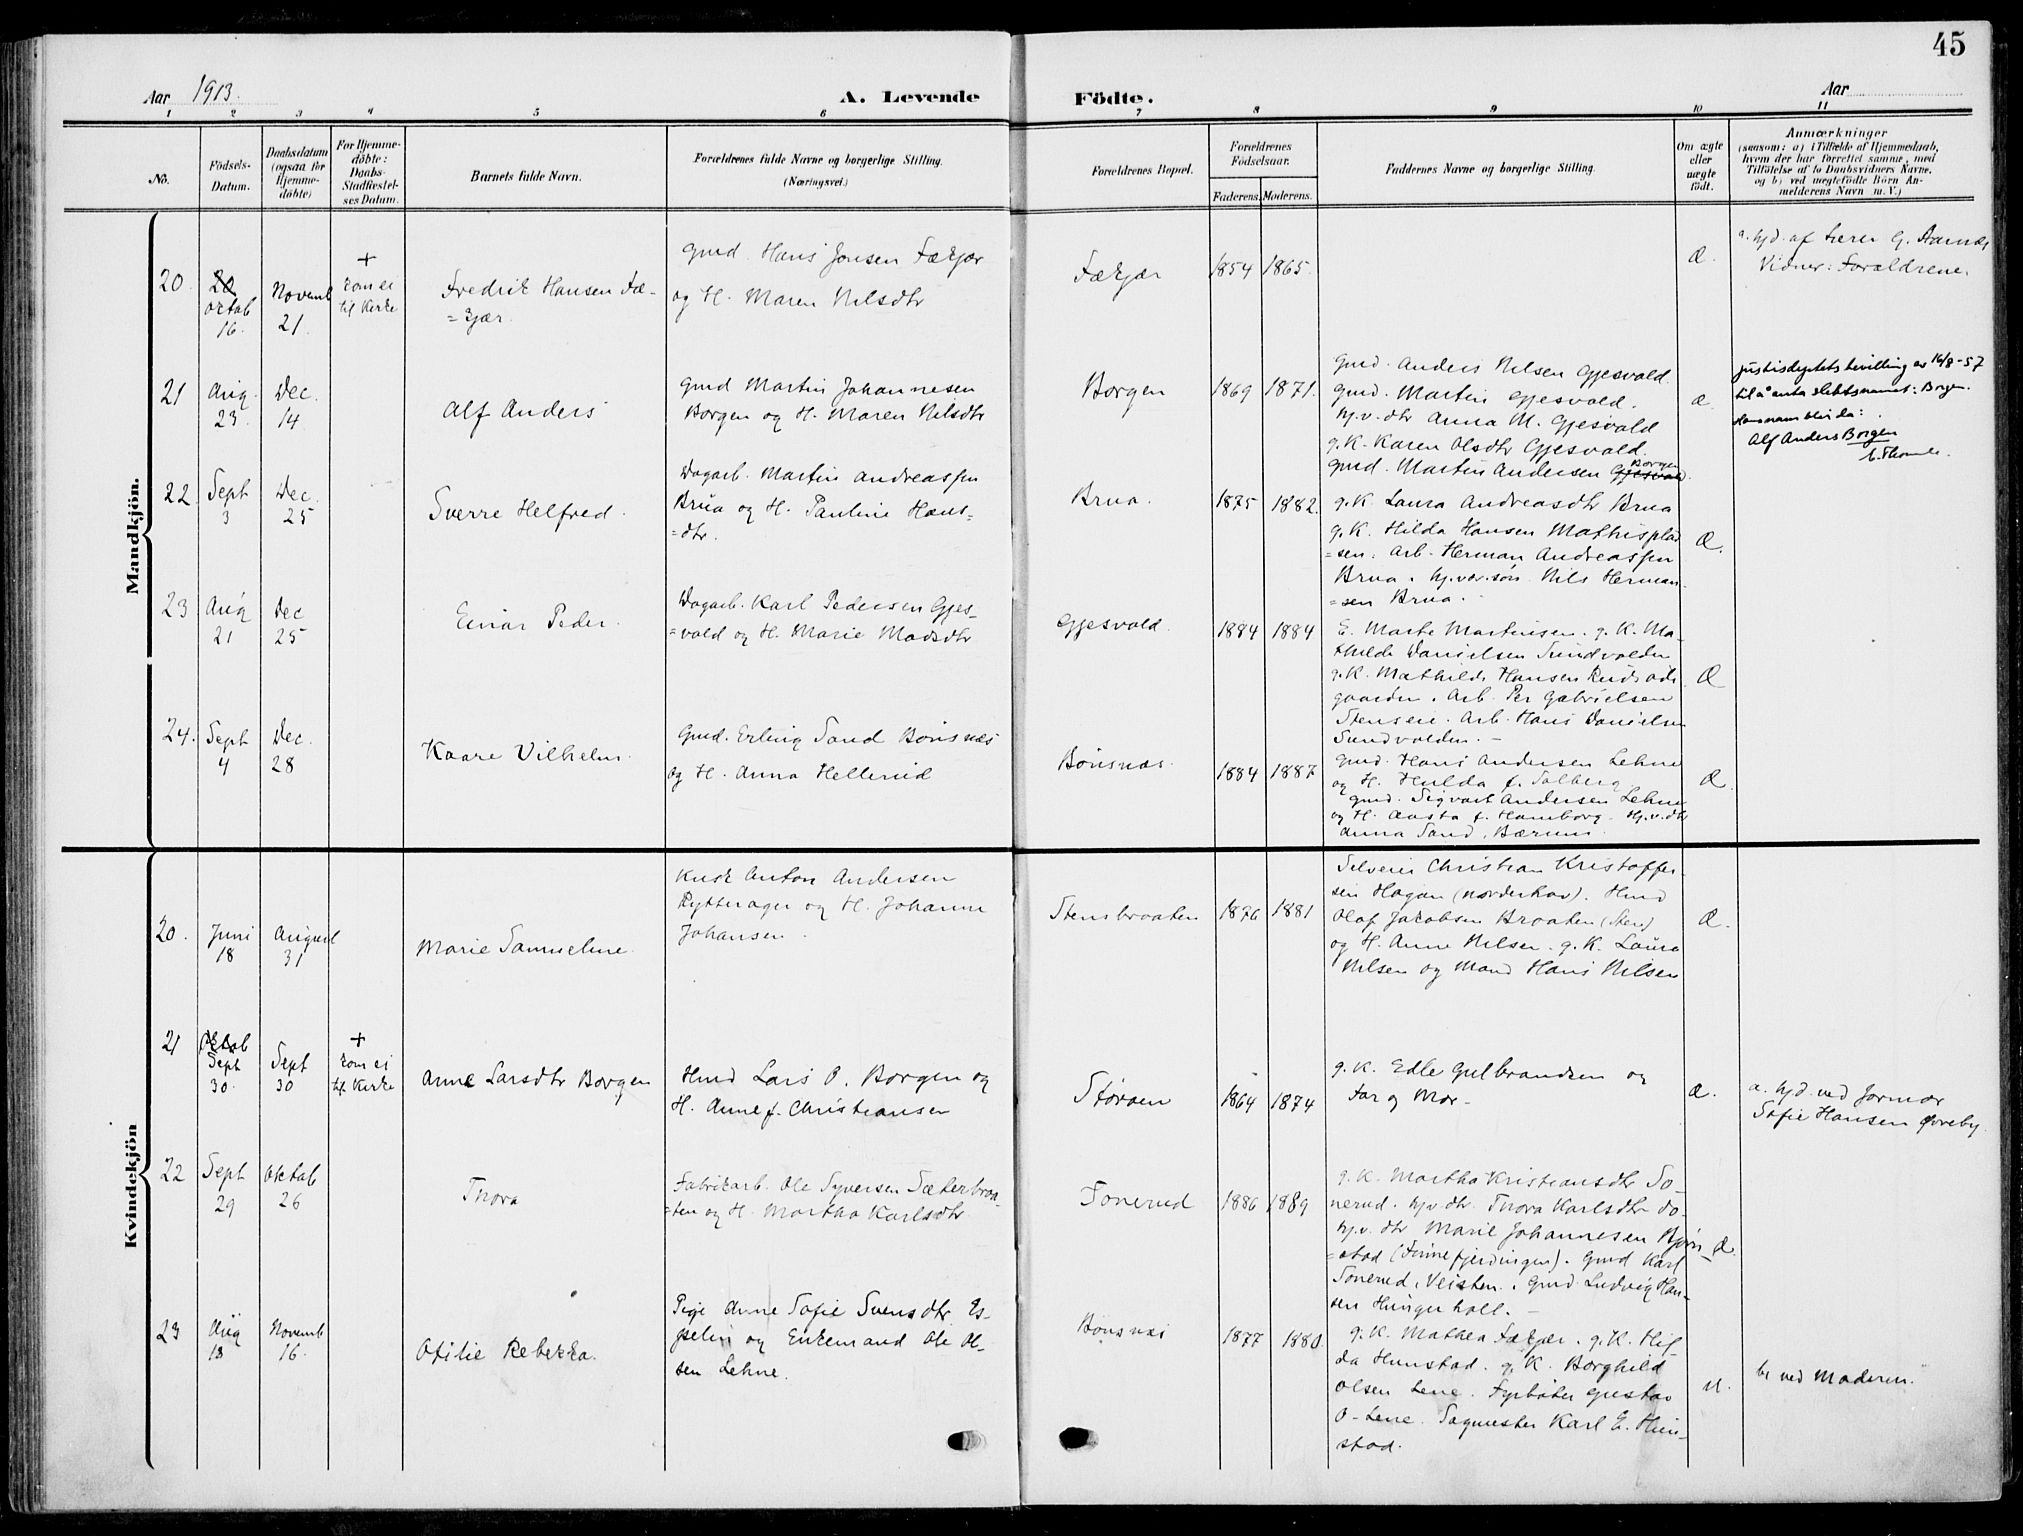 45
Aar 1913.
A. Levende Födte.
Aar
1 2 3 4 5 6 7 8 9 10 11
No.
Födsels-
Datum.
Daabsdatum
(ogsaa for
Hjemme-
döbte)
For Hjemme-
döbte:
Daabs-
Stadfæstel-
ses Datum.
Barnets fulde Navn.
Forældrenes fulde Navne og borgerlige Stilling.
(Næringsvei.)
Forældrenes Bopæl.
Forældrenes
Födselsaar.
Faderens. Moderens.
Faddernes Navne og borgerlige Stilling.
Om ægte
eller
uægte
födt.
Anmærkninger
(saasom: a) i Tilfælde af Hjemmedaab,
hvem der har forrettet samme, med
Tilföielse af to Daabsvidners Navne,
og b) ved uægtefödte Börn An-
melderens Navn m. V.)
Mandkjön.
20.
20
oktob
16.
Novemb
21.
+
kom ei
til Kirke
Fredrik Hansen Fæ-
=kjær.
Gmd. Hans Jonsen Fækjær
og H. Maren Nilsdtr
Fækjær
1854 1865.
Æ.
a. hjd. af Lærer G. Aarnes
Vidner: Forældrene.
21
Aug.
23.
Dec.
14
Alf Anders
Gmd Martin Johannesen
Borgen og H. Maren Nilsdtr
Borgen
1869 1871.
Gmd. Anders Nilsen Gjesvald.
Gmd. Martin Gjesvald.
hj.v. dtr Anna M. Gjesvald
g. K. Karen Olsdtr Gjesvald.
Gmd. Martin Andersen Gjesvald Borgen.
Æ.
Justisdeptets bevilling av 16/8-57
til å anta slektsnavnet: Borgen.
Hans navn blir da:
Alf Anders Borgen
22.
Sept
3
Dec.
25
Sverre Helfred.
Dagarb. Martin Andreassen
Brua og H. Pauline Hans=
=dtr.
Brua.
1875 1882.
g. K. Laura Andreasdtr Brua
g. K. Hilda Hansen Mathisplad
=sen. Arb. Herman Andreassen
Brua. hj.vær.søn Nils Herman-
=sen Brua.
Æ.
23
Aug
21
Dec
25
Einar Peder.
Dagarb. Karl Pedersen Gjes-
=vald og H. Marie Madsdtr
Gjesvald.
1884 1884
E. Marte Martinsen. g. K. Ma-
thilde Danielsen Sundvolden
g. K. Mathilde Hansen
gaarden. Arb. Per Gabrielsen
Stensen. Arb. Hans Danielsen
Sundvolden. -
Æ
24.
Sept
4
Dec.
28
Kaare Vilhelm.
Gmd. Erling Sand Bønsnæs
og H. Anna Hellerud
Bønsnæs.
1884 1887
Gmd. Hans Andersen Lehne
og H. Hulda f. Solberg
gmd. Sigvart Andersen Lehne
og H. Aasta f. Hamborg. Hj.v.dtr
Anna Sand, Bærum.
Æ.
Kvindekjön
20.
Juni
18
August
31
Marie Samueline.
Kusk Anton Andersen
Rytterager og H. Johanne
Johansen.
Stensbraaten
1876 1881
Selveier Christian Kristoffer-
sen Hagan (Norderhov). Hmd
Olaf Jakobsen Braaten (Sten)
og H. Anne Nilsen. g. K. Laura
Nilsen og Mand Hans Nilsen
Æ.
21
Oktob
Sept
30.
Sept
30
+
kom ei
til Kirke
Anne Larsdtr Borgen
Hmd Lars O. Borgen og
H. Anne f. Christiansen
Støroen
1864 1874
g. K. Edle Gulbrandsen og
Far og Mor -
Æ.
a. hjd. ved Jormor
Sofie Hansen Øvreby.
22
Sept
29
Oktob
26
Thora
Fabrikarb. Ole Syversen Sæterbraa-
=ten og H. Martha Karlsdtr
Tonerud
1886 1889
g. K. Martha Kristiansdtr To-
nerud. hj.v.dtr. Thora Karlsdtr do.
hj.v. dtr Marie Johannesen Bjørn
=stad (Finnefjerdingen). Gmd Karl
Tonerud, Veisten. Gmd. Ludvig Han-
sen Hungerholl. -
Æ.
23
Aug
18
Novemb
16.
Otilie Rebekka.
Pige Anne Sofie Svensdtr Es-
pelin og Enkemand Ole Ol-
sen Lehne.
Bønsnæs
1877 1880.
g. K. Mathea Fækjær. g. K. Hil-
da Hunstad. g. K. Borghild
Olsen Lene. Fyrbøter Gustav
O. Lene. Sagmester Karl E. Hun-
stad.
U.
b, ved Moderen.